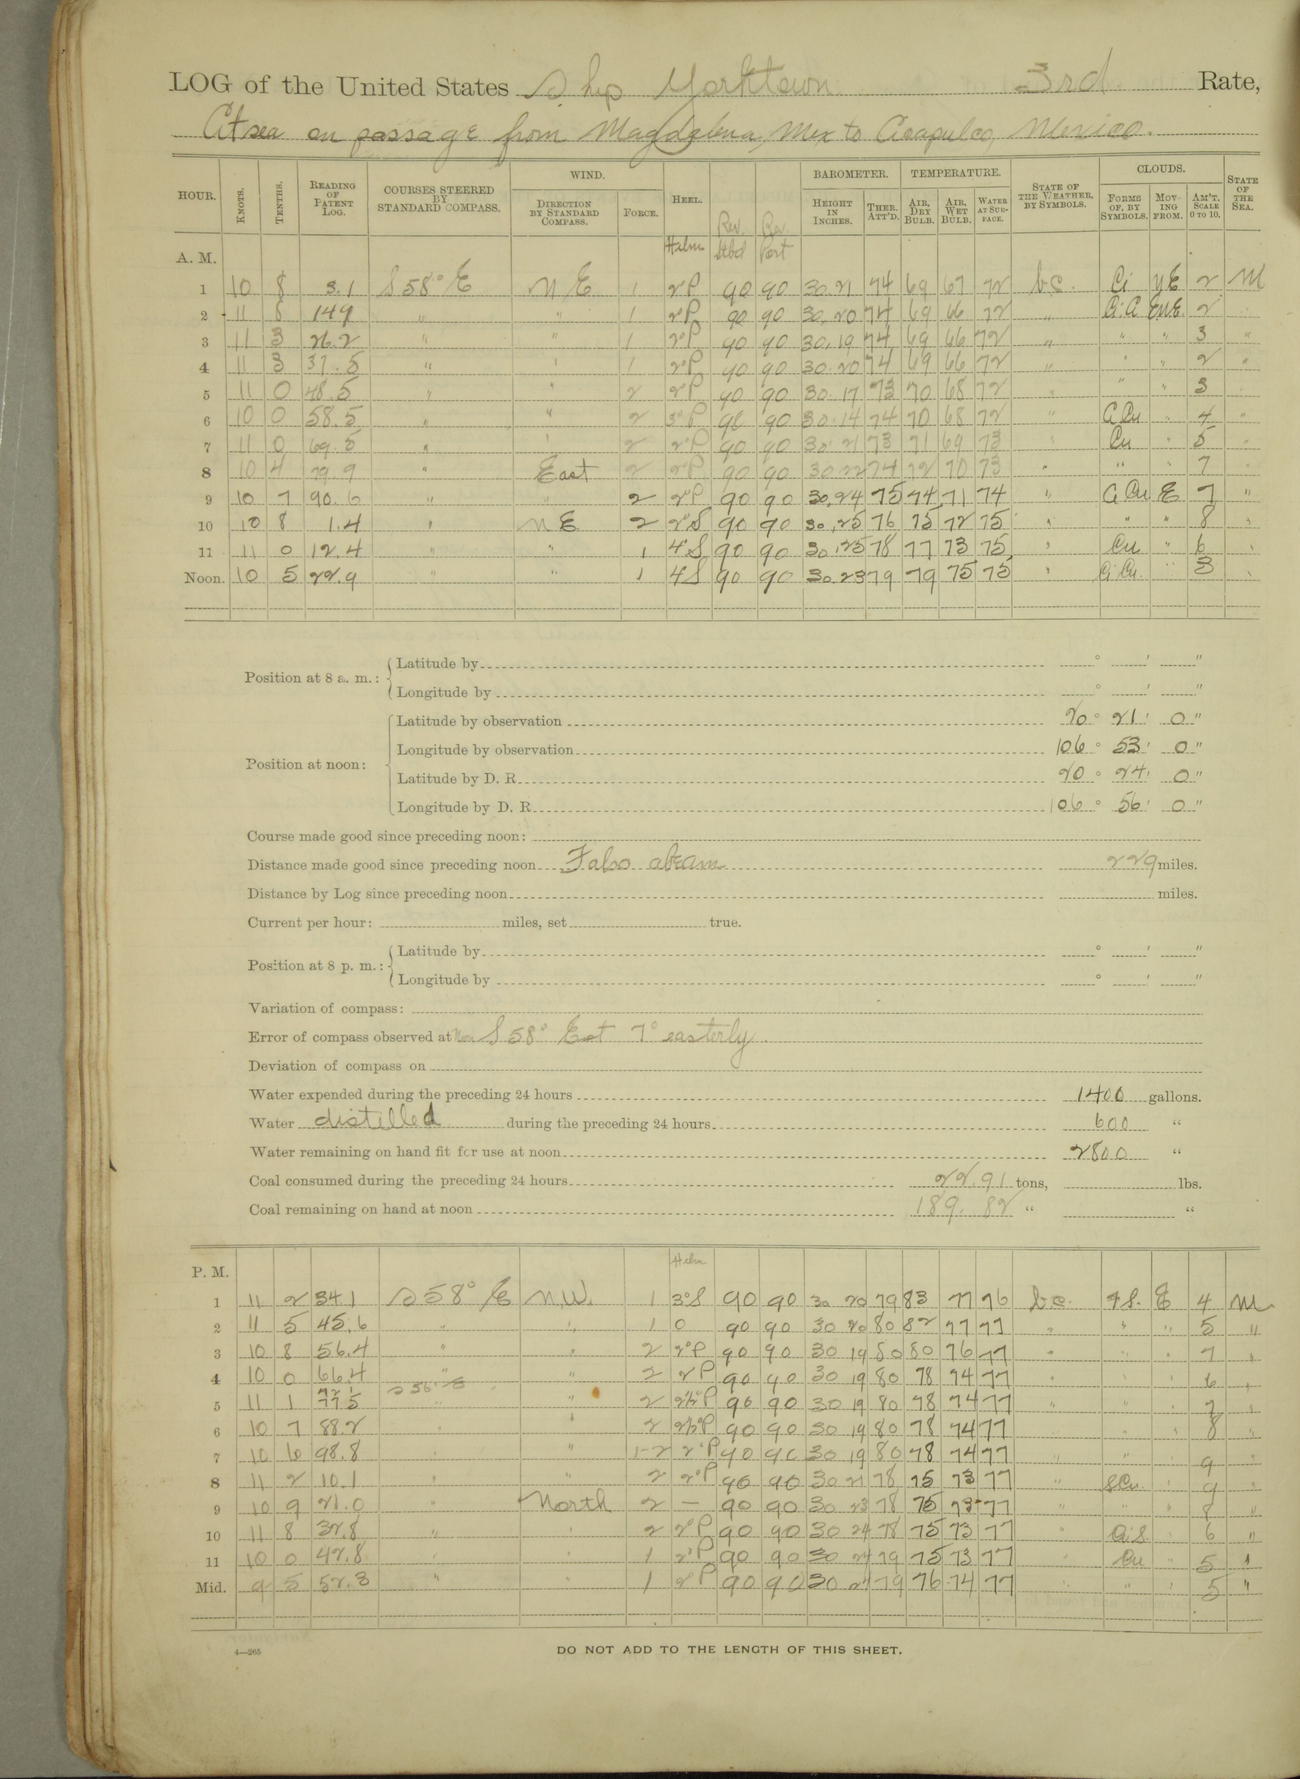 LOG of the United States Ship Yorktown. 3rd Rate,
At sea on passage from Magdalena, Mex to Acapulco, Mexico.
HOUR. KNOTS. TENTHS. READING OF PATENT LOG. COURSES STEERED BY STANDARD COMPASS. WIND. DIRECTION BY STANDARD COMPASS. FORCE. HEEL. BAROMETER. HEIGHT IN INCHES. THER. ATT'D. TEMPERATURE. AIR, DRY BULB. AIR, WET BULB. WATER AT SURFACE. STATE OF THE WEATHER, BY SYMBOLS. CLOUDS. FORMS OF, BY SYMBOLS. MOVING FROM. AM'T. SCALE 0 TO 10. STATE OF THE SEA.
Helm Rev. Stbd Rev. Port
A. M.
1 10 8 3.1 S 58° E N E 1 2°P 90 90 30.21 74 69 67 72 bc. Ci NE 2 M
2 11 8 149 " " 1 2°P 90 90 30.20 74 69 66 72 " 2
3 11 3 26.2 " " 1 2°P 90 90 30.19 74 69 66 72 " " " 3 "
4 11 3 37.5 " " 1 2°P 90 90 30.20 74 69 66 72 " " " 2 "
5 11 0 48.5 " " 2 2°P 90 90 30.17 73 70 68 72 " " 3
6 10 0 58.5 " " 2 3°P 90 90 30.14 74 70 68 72 " C Cu " 4 "
7 11 0 69.5 " " 2 2°P 90 90 30.21 73 71 69 73 Cu " 5 "
8 10 4 79.9 " East 2 2°P 90 90 30.22 74 72 70 73 " " " 7
9 10 7 90.6 " " 2 2°P 90 90 30.24 75 74 71 74 " C Cu E 7 "
10 10 8 1.4 " N E 2 2°S 90 90 30.25 76 75 72 75 " " " 8 "
11 11 0 12.4 " " 1 4 S 90 90 30.25 78 77 73 75 " Cu " 6 "
Noon. 10 5 22.9 " " 1 4 S 90 90 30.23 79 79 75 75 " Ci Cu. " 3
Position at 8 a. m.: Latitude by ° ' "
Longitude by ° ' "
Position at noon: Latitude by observation 20° 21' 0"
Longitude by observation 106° 53' 0"
Latitude by D. R. 20° 24' 0"
Longitude by D. R. 106° 56' 0"
Course made good since preceding noon:
Distance made good since preceding noon Falso abeam 229 miles.
Distance by Log since preceding noon miles.
Current per hour: miles, set true.
Position at 8 p. m.: Latitude by ° ' "
Longitude by ° ' "
Variation of compass:
Error of compass observed at S 58° East 7° easterly.
Deviation of compass on
Water expended during the preceding 24 hours 1400 gallons.
Water distilled during the preceding 24 hours 600 "
Water remaining on hand fit for use at noon 2800 "
Coal consumed during the preceding 24 hours 22.91 tons, lbs.
Coal remaining on hand at noon 189.82 " "
P. M. Helm
1 11 2 34.1 S 58° E N.W. 1 3°S 90 90 30 20 79 83 77 76 bc. E 4 M
2 11 5 45.6 " " 1 0 90 90 30 20 80 82 77 77 " " " 5 "
3 10 8 56.4 " " 2 2°P 90 90 30 19 80 80 76 77 " " 7 "
4 10 0 66.4 " " 2 2 P 90 90 30 19 80 78 74 77 " " 6 "
5 11 1 77.5 S 56° E " 2 2½°P 90 90 30 19 80 78 74 77 " " " 7 "
6 10 7 88.2 " 2 2½°P 90 90 30 19 80 78 74 77 " " 8 "
7 10 6 98.8 " " 1-2 2°P 90 90 30 19 80 78 74 77 " " 9 "
8 11 2 10.1 " " 2 2°P 90 90 30 21 78 75 73 77 " SCu. " 9 "
9 10 9 21.0 " North 2 — 90 90 30 23 78 75 73 77 " " " 8 "
10 11 8 32.8 " " 2 2°P 90 90 30 24 78 75 73 77 " Ci S. 6 "
11 10 0 42.8 " " 1 2°P 90 90 30 24 79 75 73 77 " Cu " 5 "
Mid. 9 5 52.3 " " 1 2°P 90 90 30 21 79 76 74 77 " " 5 "
4—265
DO NOT ADD TO THE LENGTH OF THIS SHEET.